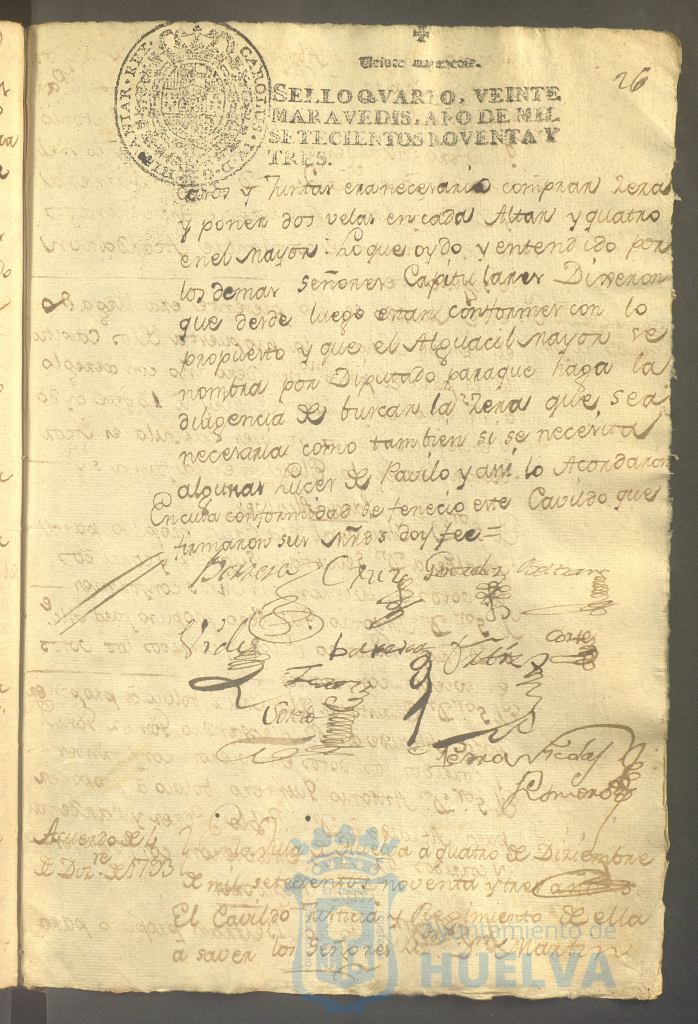 26
Veinte maravedis.
SELLO QVARTO, VEINTE
MARAVEDIS, AÑO DE MIL
SETECIENTOS NOVENTA Y
TRES.
CAROLUS IV D G HISPANIAR REX
y Juntas era necesario comprar Zera
y poner dos velas en cada Altar y quatro
en el mayor: lo que oydo y entendido por
los demas señores Capitulares Dixeron
que desde luego eran conformes con lo
propuesto y que el Alguacil mayor se
nombra por Diputado para que haga la
diligencia de buscar la Zera que sea
necesaria como tambien si se necesita
algunas luces de Pavilo y asi lo Acordaron
En cuia conformidad se fenecio este Cavildo que
firmaron sus mrds doy fee=
Barrera Cruz Gonzalez Beltrane
Vides barrera Ortiz Corte
Romero
Acuerdo de 4
de Dizre. de 1793
Huelva á quatro de Diziembre
de mil setecientos noventa y tres años
El Cavildo Justicia y Regimiento de ella
á saver los Señores Martin
Ayuntamiento de
HUELVA